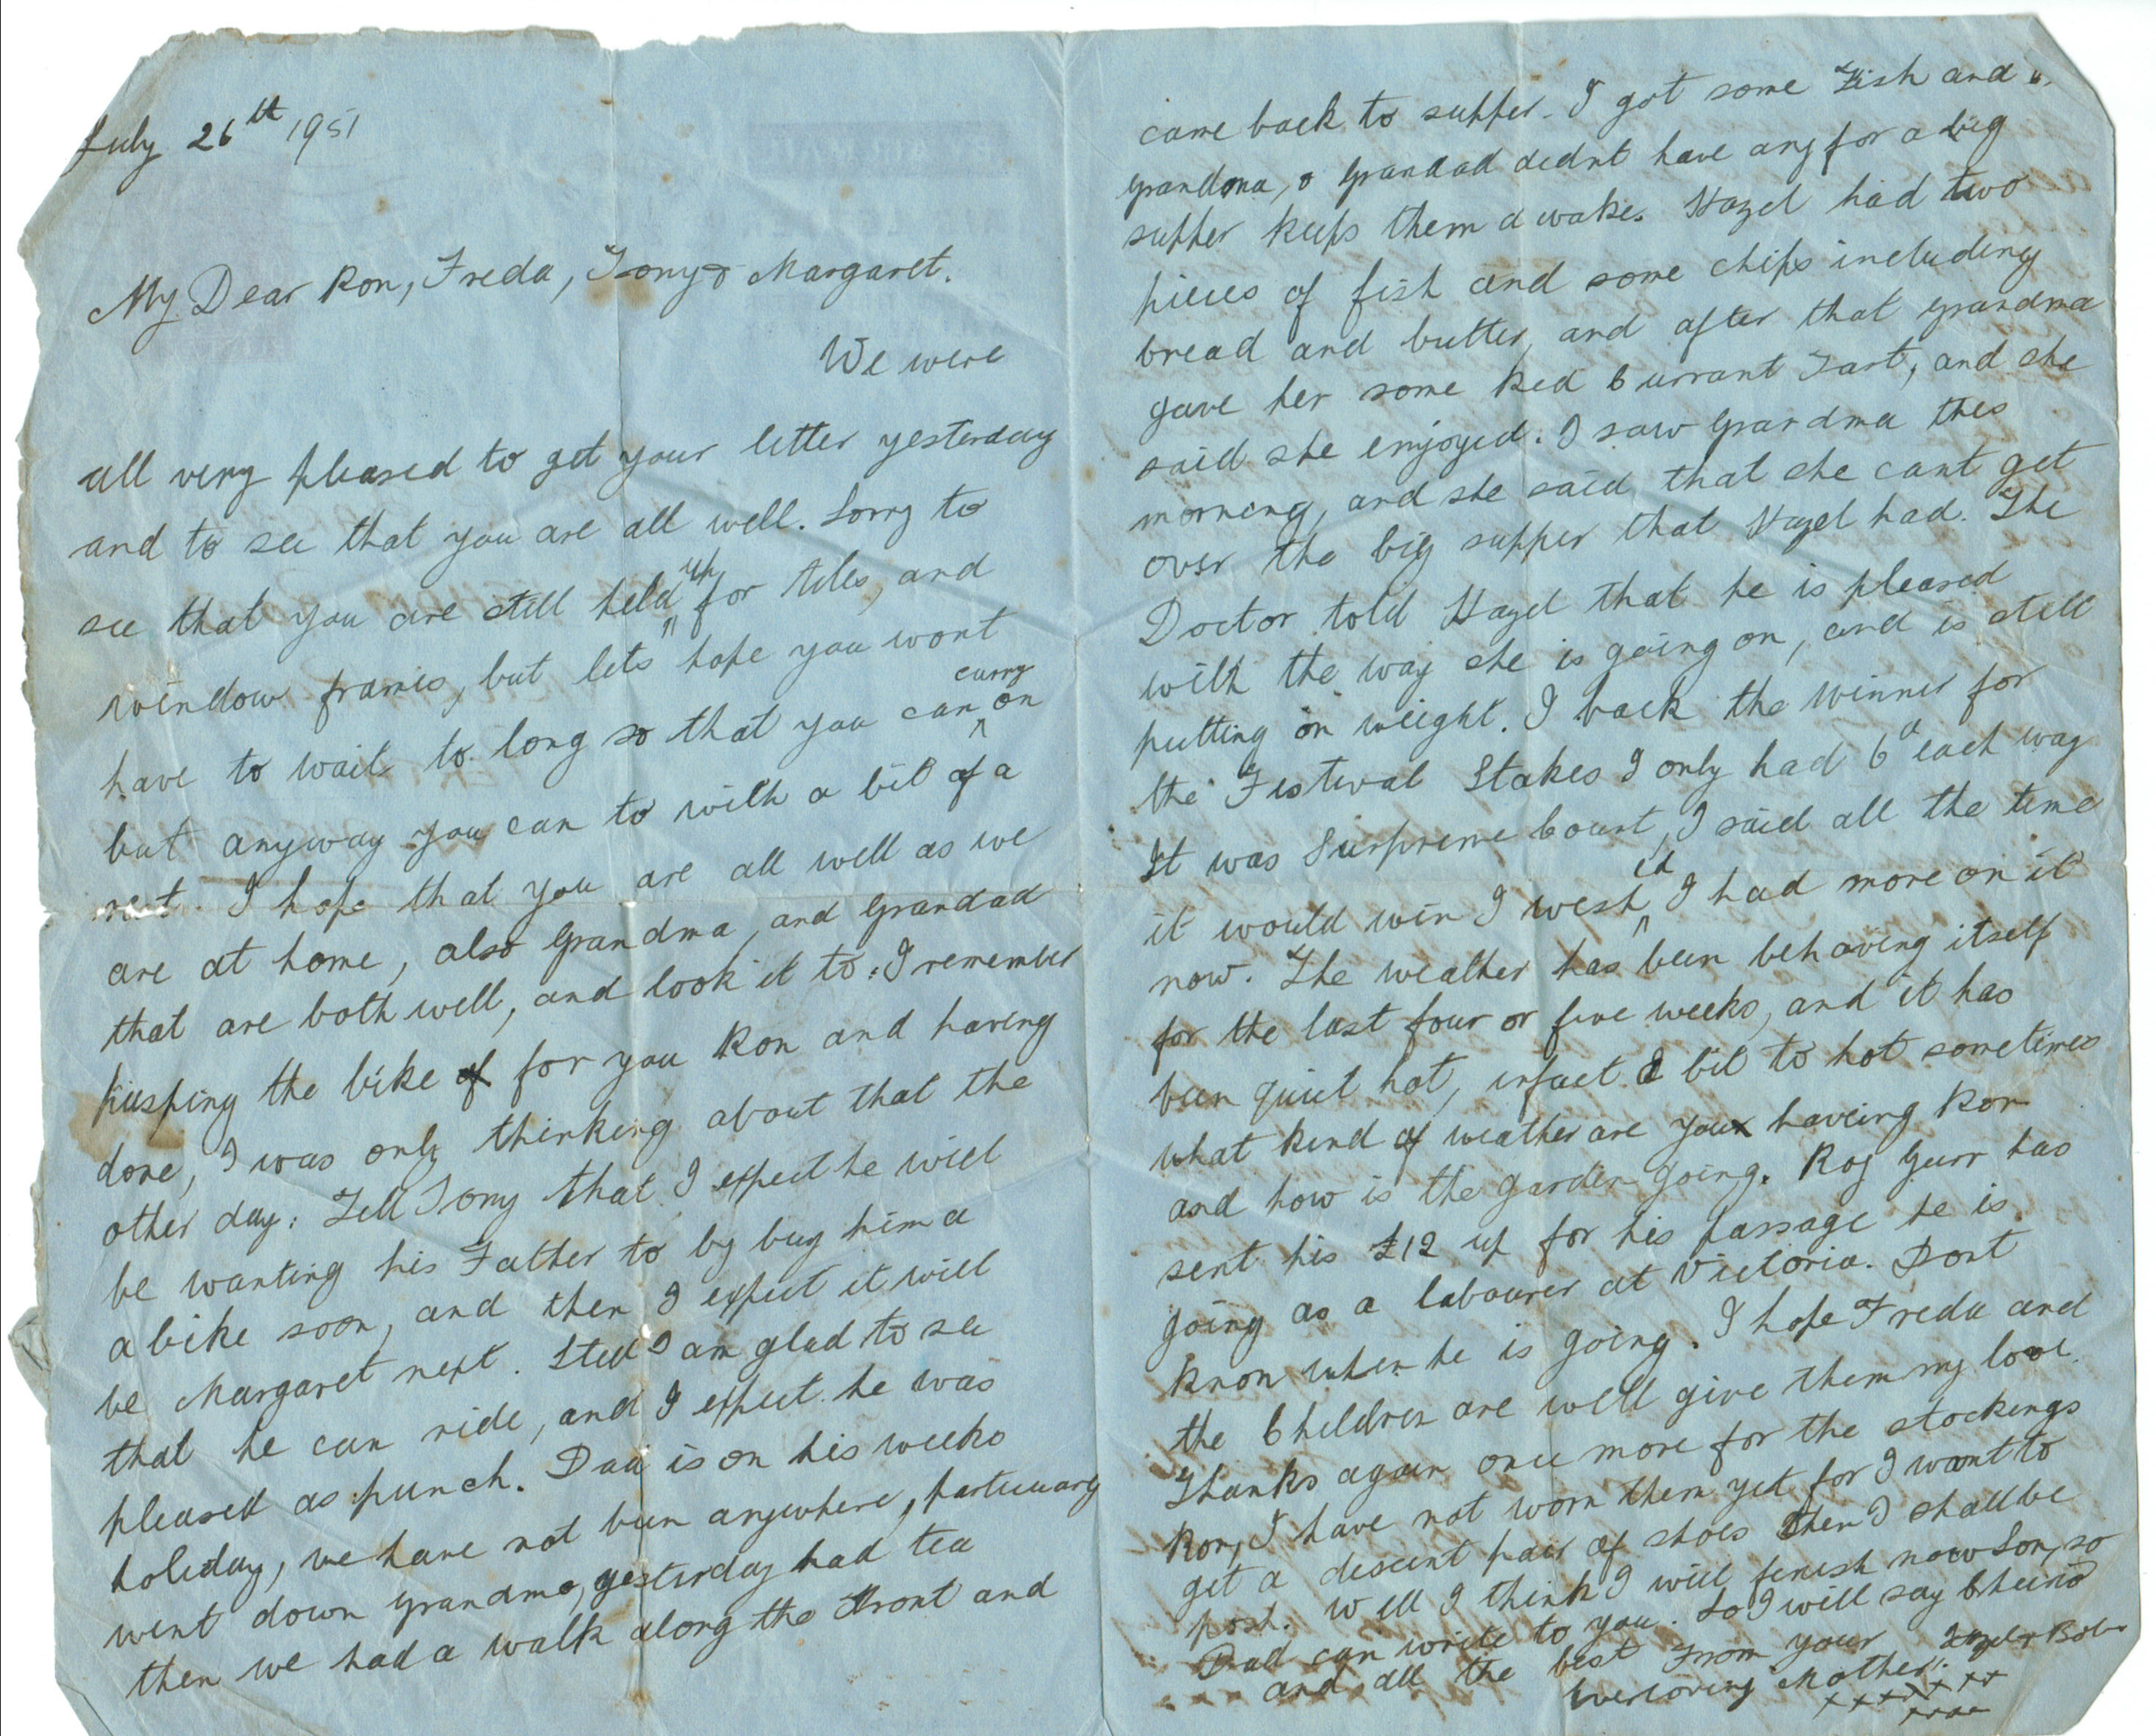 July 26th 1951
My Dear Ron, Freda, Tony & Margaret.
We were
all very pleased to get your letter yesterday
and to see that you are all well. Sorry to
see that you are still held up for tiles, and
window frames, but lets hope you wont
have to wait to long so that you can carry on
but anyway you can to with a bit of a
rest. I hope that you are all well as we
are at home, also Grandma, and Grandad
that are both well, and look it to: I remember
pusping the bike of for you Ron and having
done, I was only thinking about that the
other day: Tell Tony that I expect he will
be wanting his Father to by buy him a
a bike soon, and then I expect it will
be Margaret next. Still I am glad to see
that he can ride, and I expect he was
pleased as punch. Dad is on his weeks
holiday, we have not been anywhere,
went down Grandma, yesterday had tea
then we had a walk along the Front and
came back to supper. I got some Fish and
Grandma, & Grandad didnt have any for a big
supper keeps them awake. Hazel had two
pieces of fish and some chips including
bread and butter, and after that Grandma
gave her some Red Currant Tart, and she
said she enjoyed. I saw Grandma this
morning, and she said that she cant get
over the big supper that Hazel had. The
Doctor told Hazel that he is pleased
with the way she is going on, and is still
putting on weight. I back the winner for
the Festival Stakes I only had 6d each way
It was Surpreme Court, I said all the time
it would win I wish id I had more on it
now. The weather has been behaving itself
for the last four or five weeks, and it has
been quiet hot, infact a bit to hot sometimes
what kind of weather are you haveing Ron
and how is the garden going. Roy Gurr has
sent his £12 up for his passage he is
going as a labourer at Victoria. Dont
know when he is going. I hope Freda and
the Children are well give them my love.
Thanks again once more for the stockings
Ron, I have not worn them yet for I want to
get a descent pair of shoes then I shall be
posh. Well I think I will finish now Son, so
Dad can write to you. So I will say Cheerio
and all the best From your
Everloving Mother. Hazel & Bob
x x x x x x x
x x x x